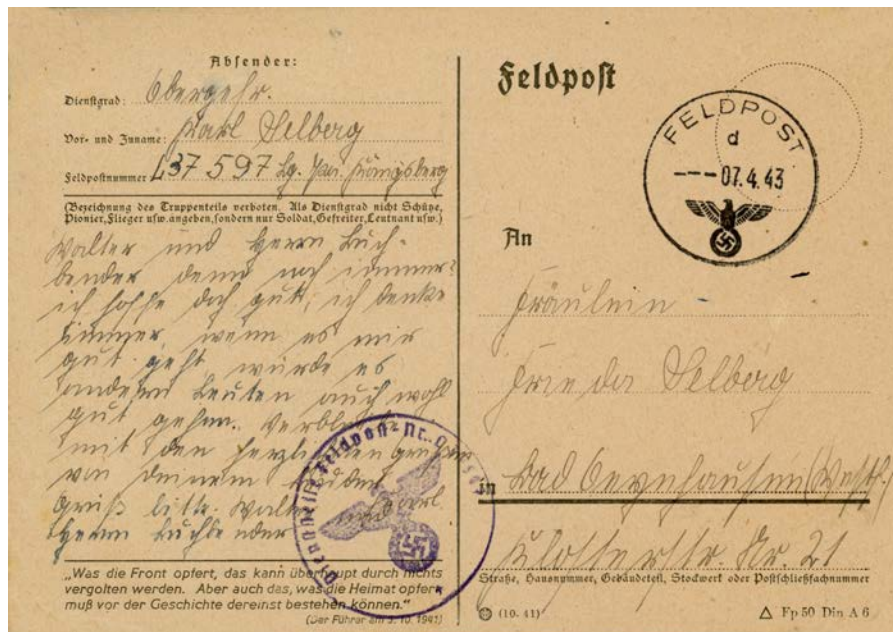 Absender:
Dienstgrad: Obergefr.
Vor- und Zuname: Karl Selberg
Feldpostnummer L37 597 Lg. Pa. Königsberg
(Bezeichnung des Truppenteils verboten. Als Dienstgrad nicht Schütze,
Pionier, Flieger usw. angeben, sondern nur Soldat, Gefreiter, Leutnant usw.)
Walter und Herrn Buch-
bender denn noch immer?
ich hoffe doch gutt, ich denke
immer, wenn es mir
gut geht, würde es
andern Leuten auch wohl
gut gehen. Verbleibe
mit den herzlichsten Grüßen
von deinem Bruder
Karl
Grüß bitte Walter und
Herrn Buchbender
Dienststelle Feldpost-Nr.
„Was die Front opfert, das kann überhaupt durch nichts
vergolten werden. Aber auch das, was die Heimat opfert,
muß vor der Geschichte dereinst bestehen können.“
(Der Führer am 3. 10. 1941)
Feldpost
FELDPOST
d
--- 07.4.43
An
Fräulein
Frieda Selberg
in Bad Oeynhausen (Westf.)
Klosterstr. Nr. 21
Straße, Hausnummer, Gebäudeteil, Stockwerk oder Postschließfachnummer
(10. 41)
Fp 50 Din A 6